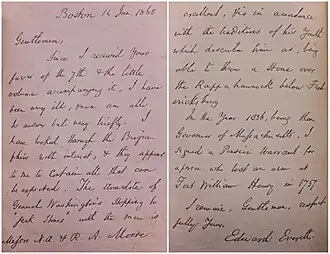 Boston 14 Jan. 1865
Gentlemen,
Since I received Your
favor of the 7th & the little
volume accompanying it, I have
been very ill, & now am able
to answer but very briefly. I
have looked through the Biogra-
phies with interest, & they appear
to me to contain all that can
be expected. The anecdote of
General Washington's stopping to
"jerk Stones" with the men is
Messrs N. A. & R. A. Moore
credible, & is in accordance
with the traditions of his Youth
which describe him as being
able to throw a Stone over
the Rappahannock below Fred-
ericksburg
In the Year 1836, being then
Governor of Massachusetts, I
signed a Pension Warrant for
a person who lost an arm at
Fort William Henry, in 1757
I remain, Gentlemen, respect-
fully Yours,
Edward Everett.